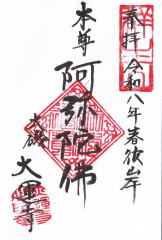 奉拝 令和八年春彼岸
本尊
阿弥陀佛
大磯
大運寺